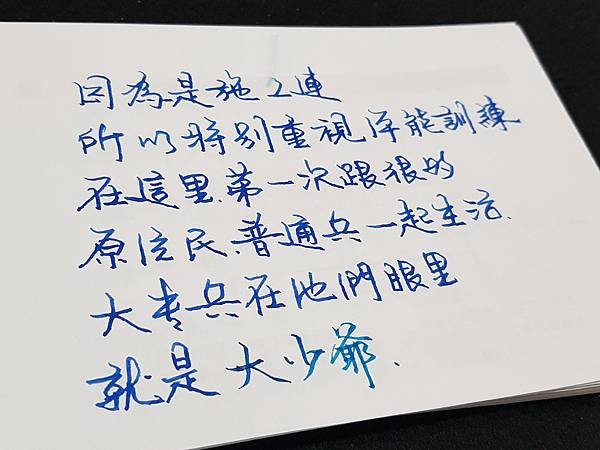 因為是施工連
所以特別重視体能訓練
在這里、第一次跟很多
原住民、普通兵一起生活、
大專兵在他們眼里
就是大少爺、